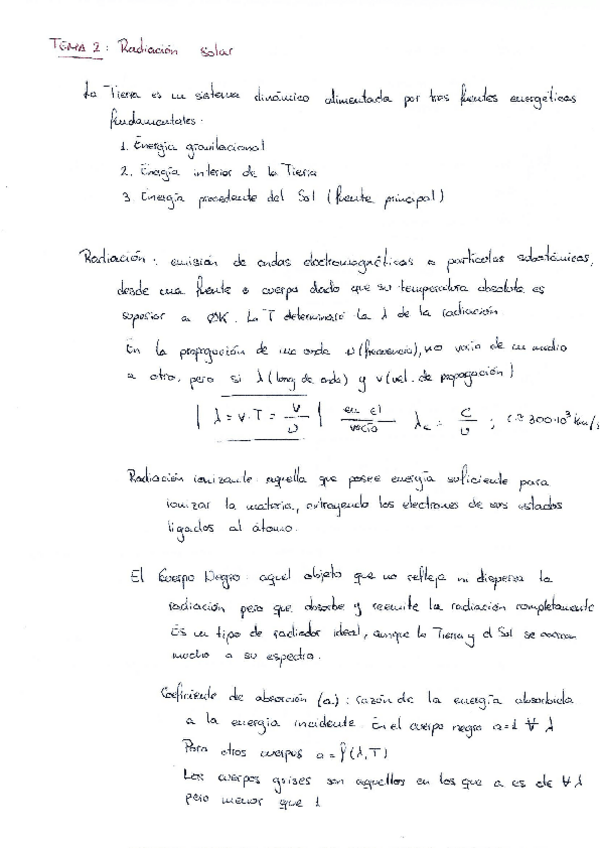 TEMA 2: Radiación solar
La Tierra es un sistema dinámico alimentada por tres fuentes energéticas
fundamentales.
1. Energía gravitacional
2. Energía interior de la Tierra
3. Energía procedente del Sol (fuente principal)
Radiación: emisión de ondas electromagnéticas o partículas subatómicas,
desde una fuente o cuerpo dado que su temperatura absoluta es
superior a 0K. La T determinará la λ de la radiación
En la propagación de una onda υ (frecuencia), no varía de un medio
a otro, pero si λ (long de onda) y v (vel. de propagación)
| λ = v·T = v/υ | en el vacío λc = c/υ ; c≈300·10³ km/s
Radiación ionizante: aquella que posee energía suficiente para
ionizar la materia, extrayendo los electrones de sus estados
ligados al átomo.
El Cuerpo Negro: aquel objeto que no refleja ni dispersa la
radiación pero que absorbe y reemite la radiación completamente
Es un tipo de radiador ideal, aunque la Tierra y el Sol se acercan
mucho a su espectro.
Coeficiente de absorción (a): razón de la energía absorbida
a la energía incidente. En el cuerpo negro a=1 ∀ λ
Para otros cuerpos a = f(λ,T)
Los cuerpos grises son aquellos en los que a es de ∀ λ
pero menor que 1